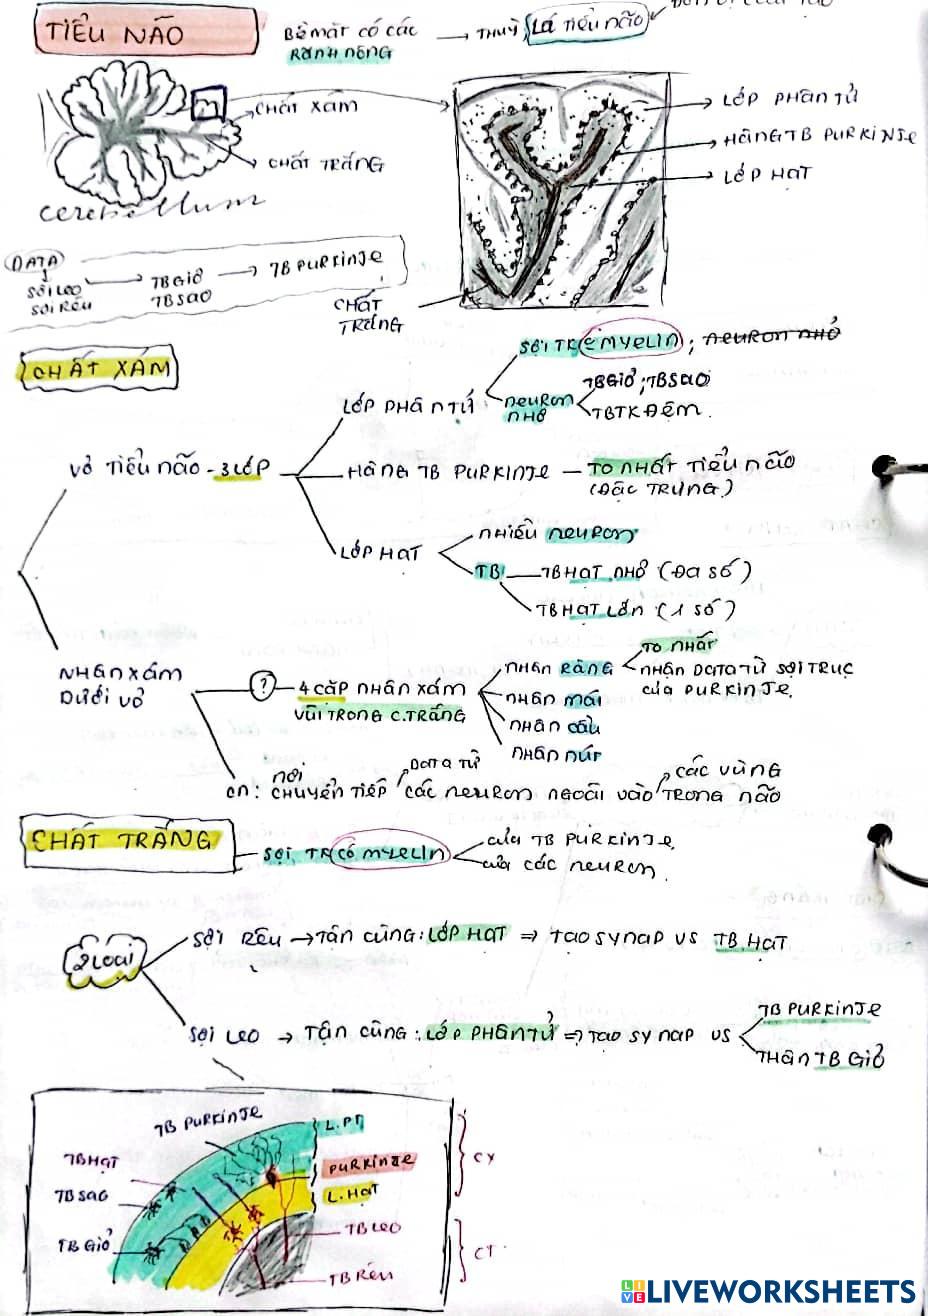 TIỂU NÃO
Bề mặt có các
Rãnh nông
→ THUỲ, Lá Tiểu não
CHẤT XÁM
CHẤT TRẮNG
cerebellum
LỚP PHÂN TỬ
HÀNG TB PURKINJE
LỚP HẠT
CHẤT
TRẮNG
DATA
SỢI LEO → TB GIỎ → TB PURKINJE
SỢI RÊU TB SAO
CHẤT XÁM
VỎ TIỂU NÃO - 3 LỚP
LỚP PHÂN TỬ
SỢI TK Ē MYELIN; neuron nhỏ
neuron
nhỏ
TB GIỎ; TB SAO
TBTK ĐỆM.
HÀNG TB PURKINJE — TO NHẤT TIỂU NÃO
(ĐẶC TRƯNG)
LỚP HẠT
NHIỀU neuron
TB — TB HẠT NHỎ (ĐA SỐ)
TB HẠT LỚN (1 SỐ)
NHÂN XÁM
DƯỚI VỎ
? — 4 CẶP NHÂN XÁM
VÙI TRONG C.TRẮNG
NHÂN RĂNG
TO NHẤT
NHẬN DATA TỪ SỢI TRỤC
CỦA PURKINJE.
NHÂN mái
NHÂN cầu
NHÂN nút
CN: nơi CHUYỂN TIẾP DATA TỪ các neuron ngoài vào các vùng TRONG não
CHẤT TRẮNG
SỢI TK có MYELIN
của TB PURKINJE.
của các neuron.
2 loại
SỢI RÊU → TẬN CÙNG: LỚP HẠT ⇒ TẠO SYNAP VS TB HẠT
SỢI LEO → TẬN CÙNG: LỚP PHÂN TỬ ⇒ TẠO SYNAP VS
TB PURKINJE
THÂN TB GIỎ
TB PURKINJE
L.PT
TB HẠT
PURKINJE
CX
TB SAO
L.HẠT
TB GIỎ
TB LEO
CT
TB RÊU
LIVEWORKSHEETS